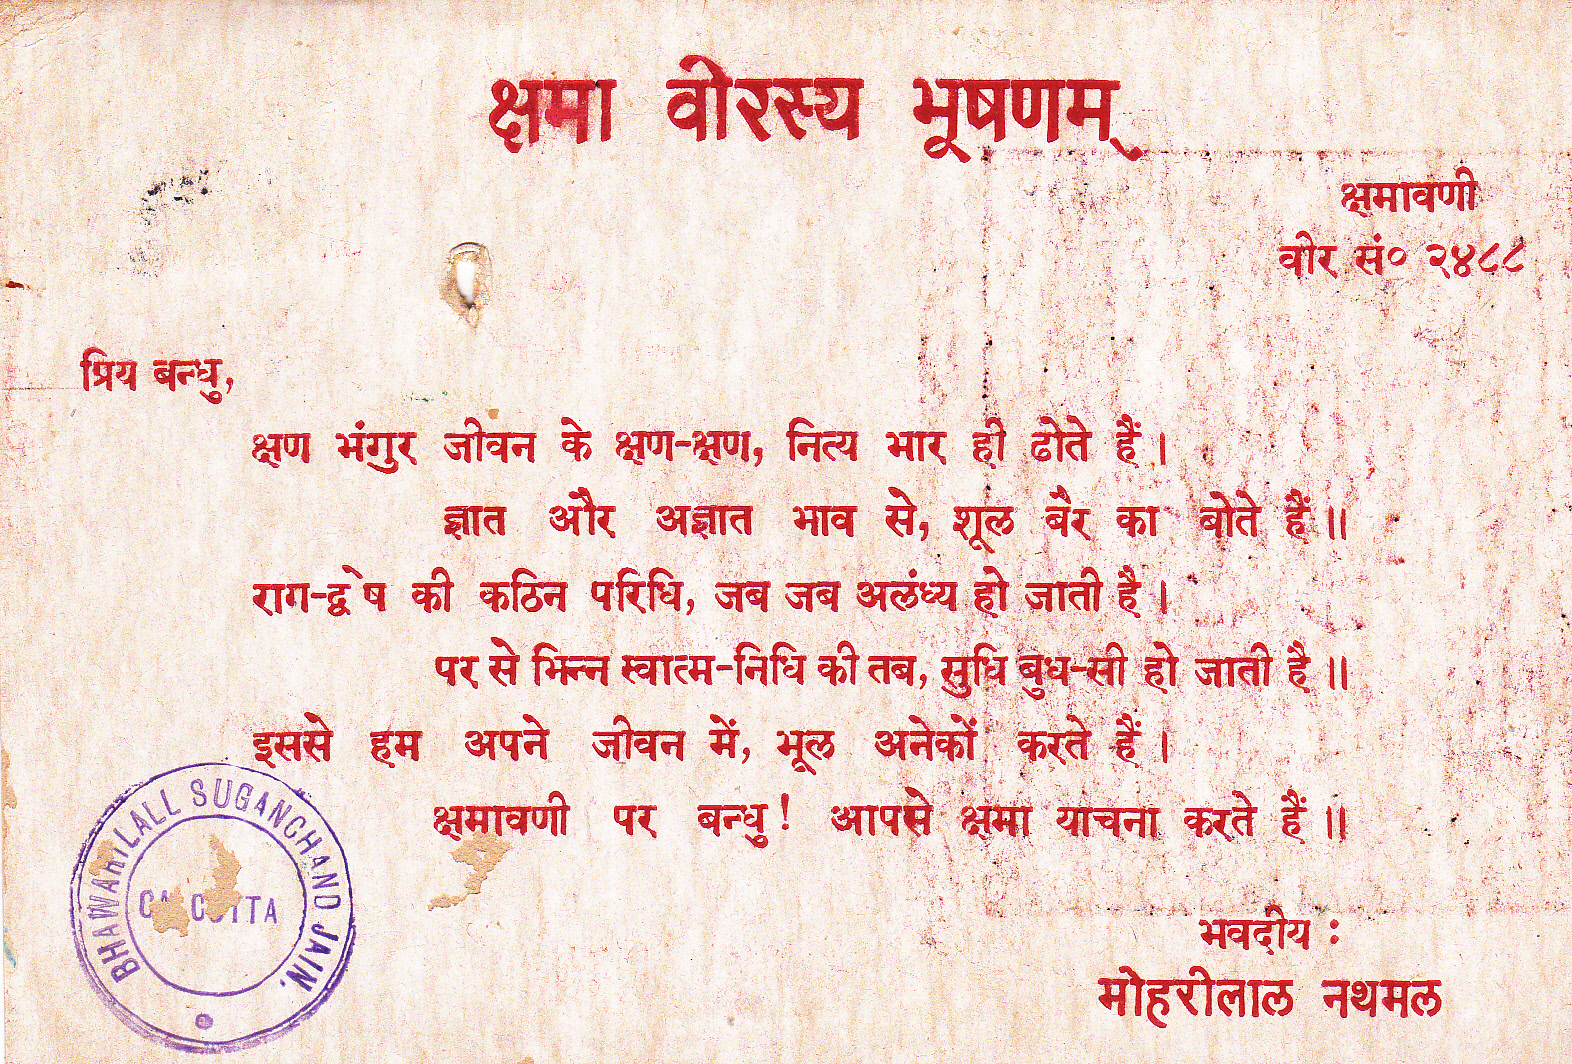 क्षमा वीरस्य भूषणम्
क्षमावणी
वीर सं० २४८८
प्रिय बन्धु,
क्षण भंगुर जीवन के क्षण-क्षण, नित्य भार ही ढोते हैं।
ज्ञात और अज्ञात भाव से, शूल बैर का बोते हैं॥
राग-द्वेष की कठिन परिधि, जब जब अलंध्य हो जाती है।
पर से भिन्न स्वात्म-निधि की तब, सुधि बुध-सी हो जाती है॥
इससे हम अपने जीवन में, भूल अनेकों करते हैं।
क्षमावणी पर बन्धु! आपसे क्षमा याचना करते हैं॥
भवदीय :
मोहरीलाल नथमल
BHAWARILALL SUGANCHAND JAIN.
CALCUTTA